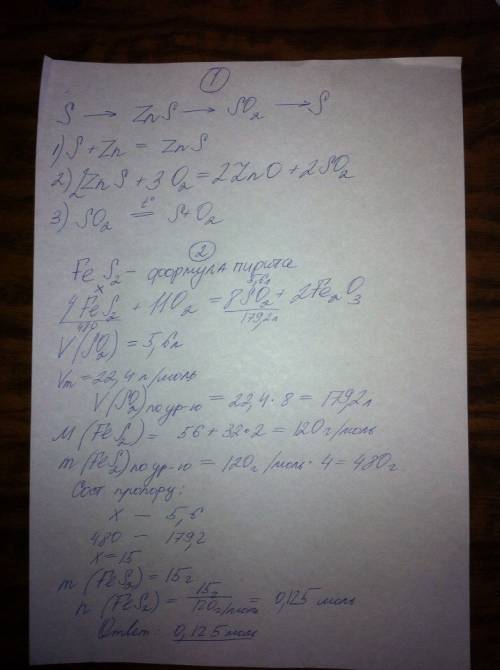 1
S → ZnS → SO2 → S
1) S + Zn = ZnS
2) 2ZnS + 3O2 = 2ZnO + 2SO2
3) SO2 =t°= S+O2
2
FeS2 - формула пирита
x 5,6л
4FeS2 + 11O2 = 8SO2 + 2Fe2O3
480 179,2л
V(SO2) = 5,6л
Vm = 22,4 л/моль
V(SO2) по ур-ю = 22,4 · 8 = 179,2л
M(FeS2) = 56 + 32·2 = 120г/моль
m(FeS2) по ур-ю = 120г/моль · 4 = 480г
Сост пропорц:
x — 5,6
480 — 179,2
x = 15
m(FeS2) = 15г
n(FeS2) = 15г / 120г/моль = 0,125 моль
Ответ: 0,125 моль